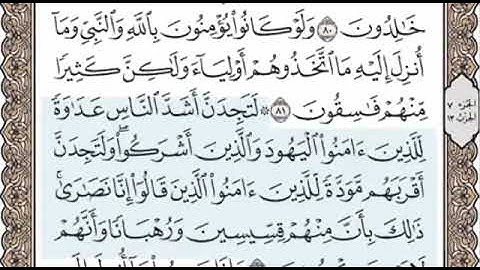 خَـٰلِدُونَ ٨٠ وَلَوْ كَانُوا۟ يُؤْمِنُونَ بِٱللَّهِ وَٱلنَّبِىِّ وَمَآ
أُنزِلَ إِلَيْهِ مَا ٱتَّخَذُوهُمْ أَوْلِيَآءَ وَلَـٰكِنَّ كَثِيرًا
مِّنْهُمْ فَـٰسِقُونَ ٨١ ۞ لَتَجِدَنَّ أَشَدَّ ٱلنَّاسِ عَدَٰوَةً
لِّلَّذِينَ ءَامَنُوا۟ ٱلْيَهُودَ وَٱلَّذِينَ أَشْرَكُوا۟ ۖ وَلَتَجِدَنَّ
أَقْرَبَهُم مَّوَدَّةً لِّلَّذِينَ ءَامَنُوا۟ ٱلَّذِينَ قَالُوٓا۟ إِنَّا نَصَـٰرَىٰ ۚ
ذَٰلِكَ بِأَنَّ مِنْهُمْ قِسِّيسِينَ وَرُهْبَانًا وَأَنَّهُمْ
الجزء ٧
الحزب ١٣